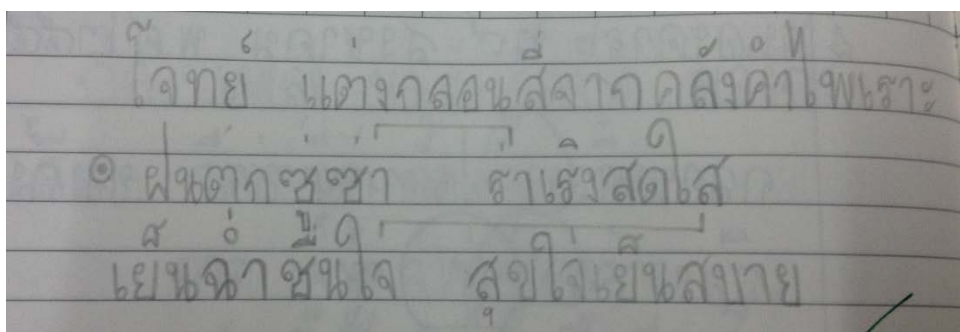 โจทย์ แต่งกลอนสี่จากคลังคำไพเราะ
๏ ฝนตกซู่ซ่า ร่าเริงสดใส
เย็นฉ่ำชื่นใจ สุขใจเย็นสบาย